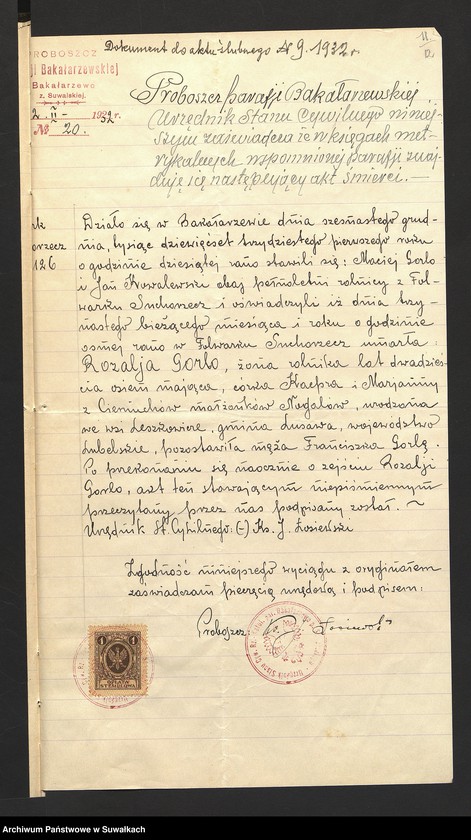 Dokument do aktu ślubnego № 9. 1932 r.
11
PROBOSZCZ
ji Bakałarzewskiej
Bakałarzewo
z. Suwalskiej.
2. II - 1932
№ 20.
Proboszcz parafji Bakałarzewskiej,
Urzędnik Stanu Cywilnego niniej-
szym zaświadcza że w księgach met-
rykalnych wspomnionej parafji znaj-
duje się następujący akt śmierci. —
126
Działo się w Bakałarzewie dnia szesnastego grud-
nia, tysiąc dziewięćset trzydziestego pierwszego roku
o godzinie dziesiątej rano stawili się: Maciej Gorlo
i Jan Kowalewski obaj pełnoletni rolnicy z Fol-
warku Suchorzec i oświadczyli iż dnia trzy-
nastego bieżącego miesiąca i roku o godzinie
ósmej rano w Folwarku Suchorzec umarła:
Rozalja Gorlo, żona rolnika lat dwadzieś-
cia osiem mająca, córka Kacpra i Marjanny
z małżonków urodzona
we wsi gmina województwo
Lubelskie, pozostawiła męża Franciszka Gorlę.
Po przekonaniu się naocznie o zejściu Rozalji
Gorlo, akt ten stawającym niepiśmiennym
przeczytany przez nas podpisany został. ~
Urzędnik St. Cywilnego: (-) Ks. J. Łosiewski
Zgodność niniejszego wyciągu z oryginałem
zaświadczam pieczęcią urzędową i podpisem:
Proboszcz:
1 1
OPŁATA
STEMPLOWA
Archiwum Państwowe w Suwałkach